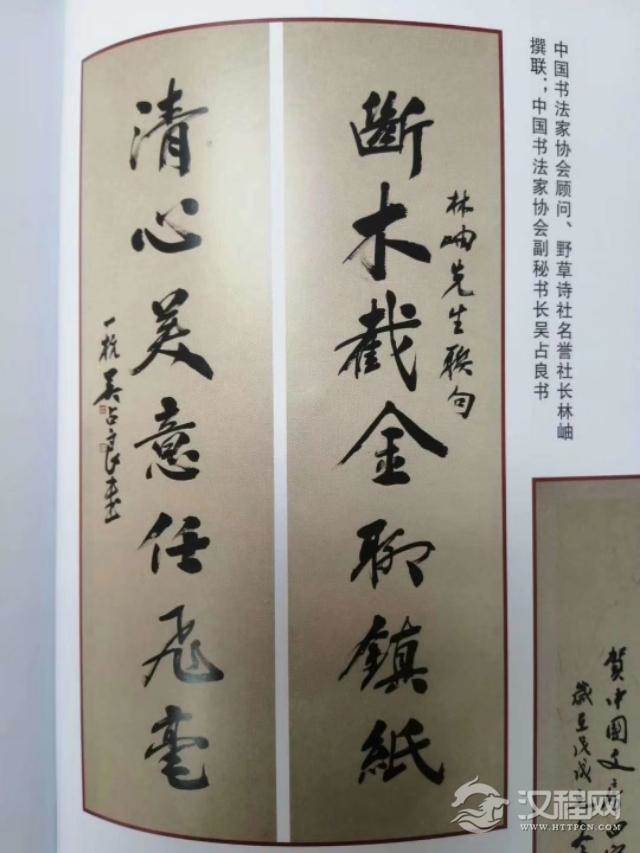 中国书法家协会顾问、野草诗社名誉社长林岫
撰联；中国书法家协会副秘书长吴占良书
林岫先生联句
斷木截金聊鎮紙
清心美意任飛毫
一杭吴占良書
賀中國文
歲在戊戌
汉程网
HTTPCN.COM